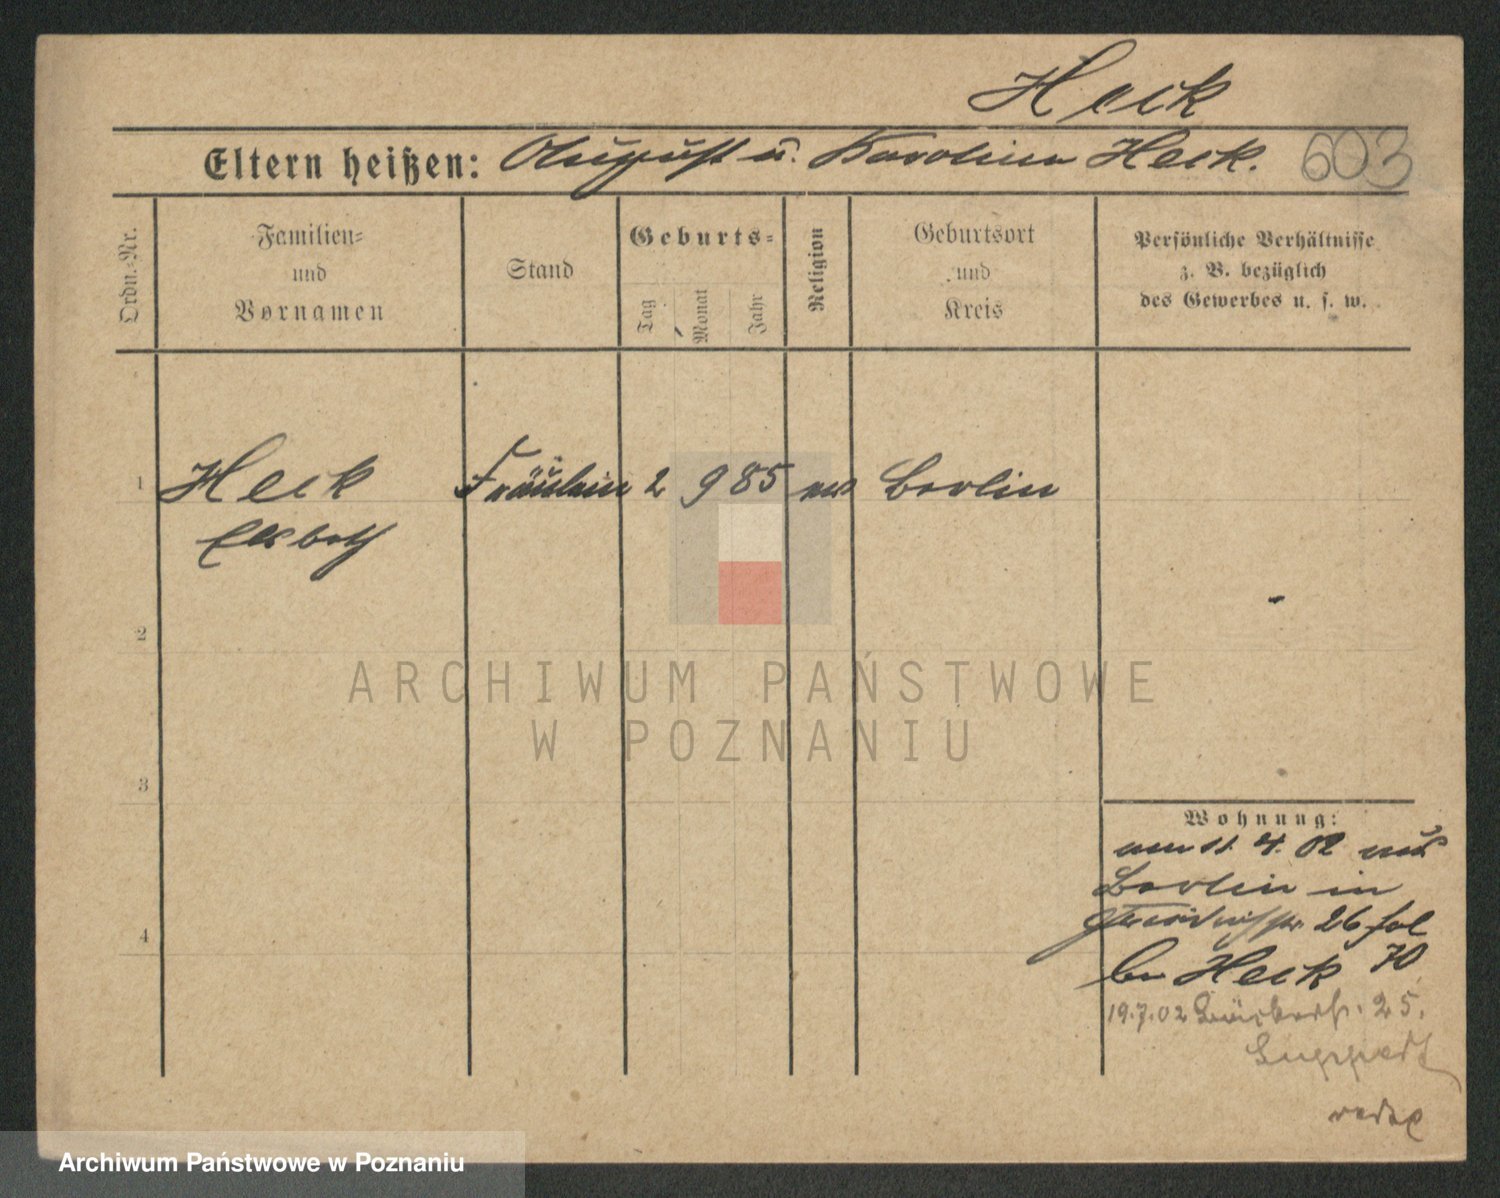 Heck
Eltern heißen: August u. Karoline Heck. 603
Ordn.-Nr.
Familien-
und
Vornamen
Stand
Geburts-
Tag
Monat
Jahr
Religion
Geburtsort
und
Kreis
Persönliche Verhältnisse
z. B. bezüglich
des Gewerbes u. s. w.
1 Heck Fräulein 2 9 85 ev Berlin
Elsbeth
2
3
4
Wohnung:
am 11. 4. 02 aus
Berlin in
26
bei Heck 70
19.7.02 25.
Luppert
ARCHIWUM PAŃSTWOWE
W POZNANIU
Archiwum Państwowe w Poznaniu